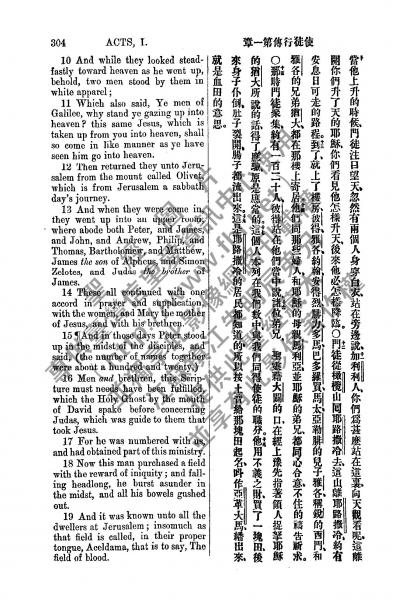 304 ACTS, I.
10 And while they looked stead-
fastly toward heaven as he went up,
behold, two men stood by them in
white apparel;
11 Which also said, Ye men of
Galilee, why stand ye gazing up into
heaven? this same Jesus, which is
taken up from you into heaven, shall
so come in like manner as ye have
seen him go into heaven.
12 Then returned they unto Jeru-
salem from the mount called Olivet,
which is from Jerusalem a sabbath
day's journey.
13 And when they were come in,
they went up into an upper room,
where abode both Peter, and James,
and John, and Andrew, Philip, and
Thomas, Bartholomew, and Matthew,
James the son of Alpheus, and Simon
Zelotes, and Judas the brother of
James.
14 These all continued with one
accord in prayer and supplication,
with the women, and Mary the mother
of Jesus, and with his brethren.
15 ¶ And in those days Peter stood
up in the midst of the disciples, and
said, (the number of names together
were about a hundred and twenty,)
16 Men and brethren, this Scrip-
ture must needs have been fulfilled,
which the Holy Ghost by the mouth
of David spake before concerning
Judas, which was guide to them that
took Jesus.
17 For he was numbered with us,
and had obtained part of this ministry.
18 Now this man purchased a field
with the reward of iniquity; and fall-
ing headlong, he burst asunder in
the midst, and all his bowels gushed
out.
19 And it was known unto all the
dwellers at Jerusalem; insomuch as
that field is called, in their proper
tongue, Aceldama, that is to say, The
field of blood.
使徒行傳第一章
當他上升的時候門徒注目望天忽然有兩個人身穿白衣站在旁邊說加利利人你們爲甚麼站在這裏向天觀看呢這離
開你們升了天的耶穌你們看見他怎樣升天後來他必怎樣降臨〇門徒從橄欖山回耶路撒冷去這山離耶路撒冷約有
安息日可走的路程到了就上了樓房彼得雅各約翰安得烈腓力多馬巴多羅買馬太亞勒腓的兒子雅各稱銳的西門和
雅各的兄弟猶大都在那樓上寄居他們同那些婦人和耶穌的母親馬利亞並耶穌的弟兄都同心合意不住的禱告祈求
〇那時門徒聚集約有一百二十人彼得站在他們當中說諸位弟兄聖靈藉大闢的口在經上豫先指著領人捉拏耶穌
的猶大所說的話得了應驗原是應當的這個人曾列在我們數中與我們同得使徒的職分他用不義之財買了一塊田後
來身子仆倒肚子裂開腸子都流出來這是耶路撒冷的居民都知道的所以按土音給那塊田起名叫作亞革大馬繙出來
就是血田的意思